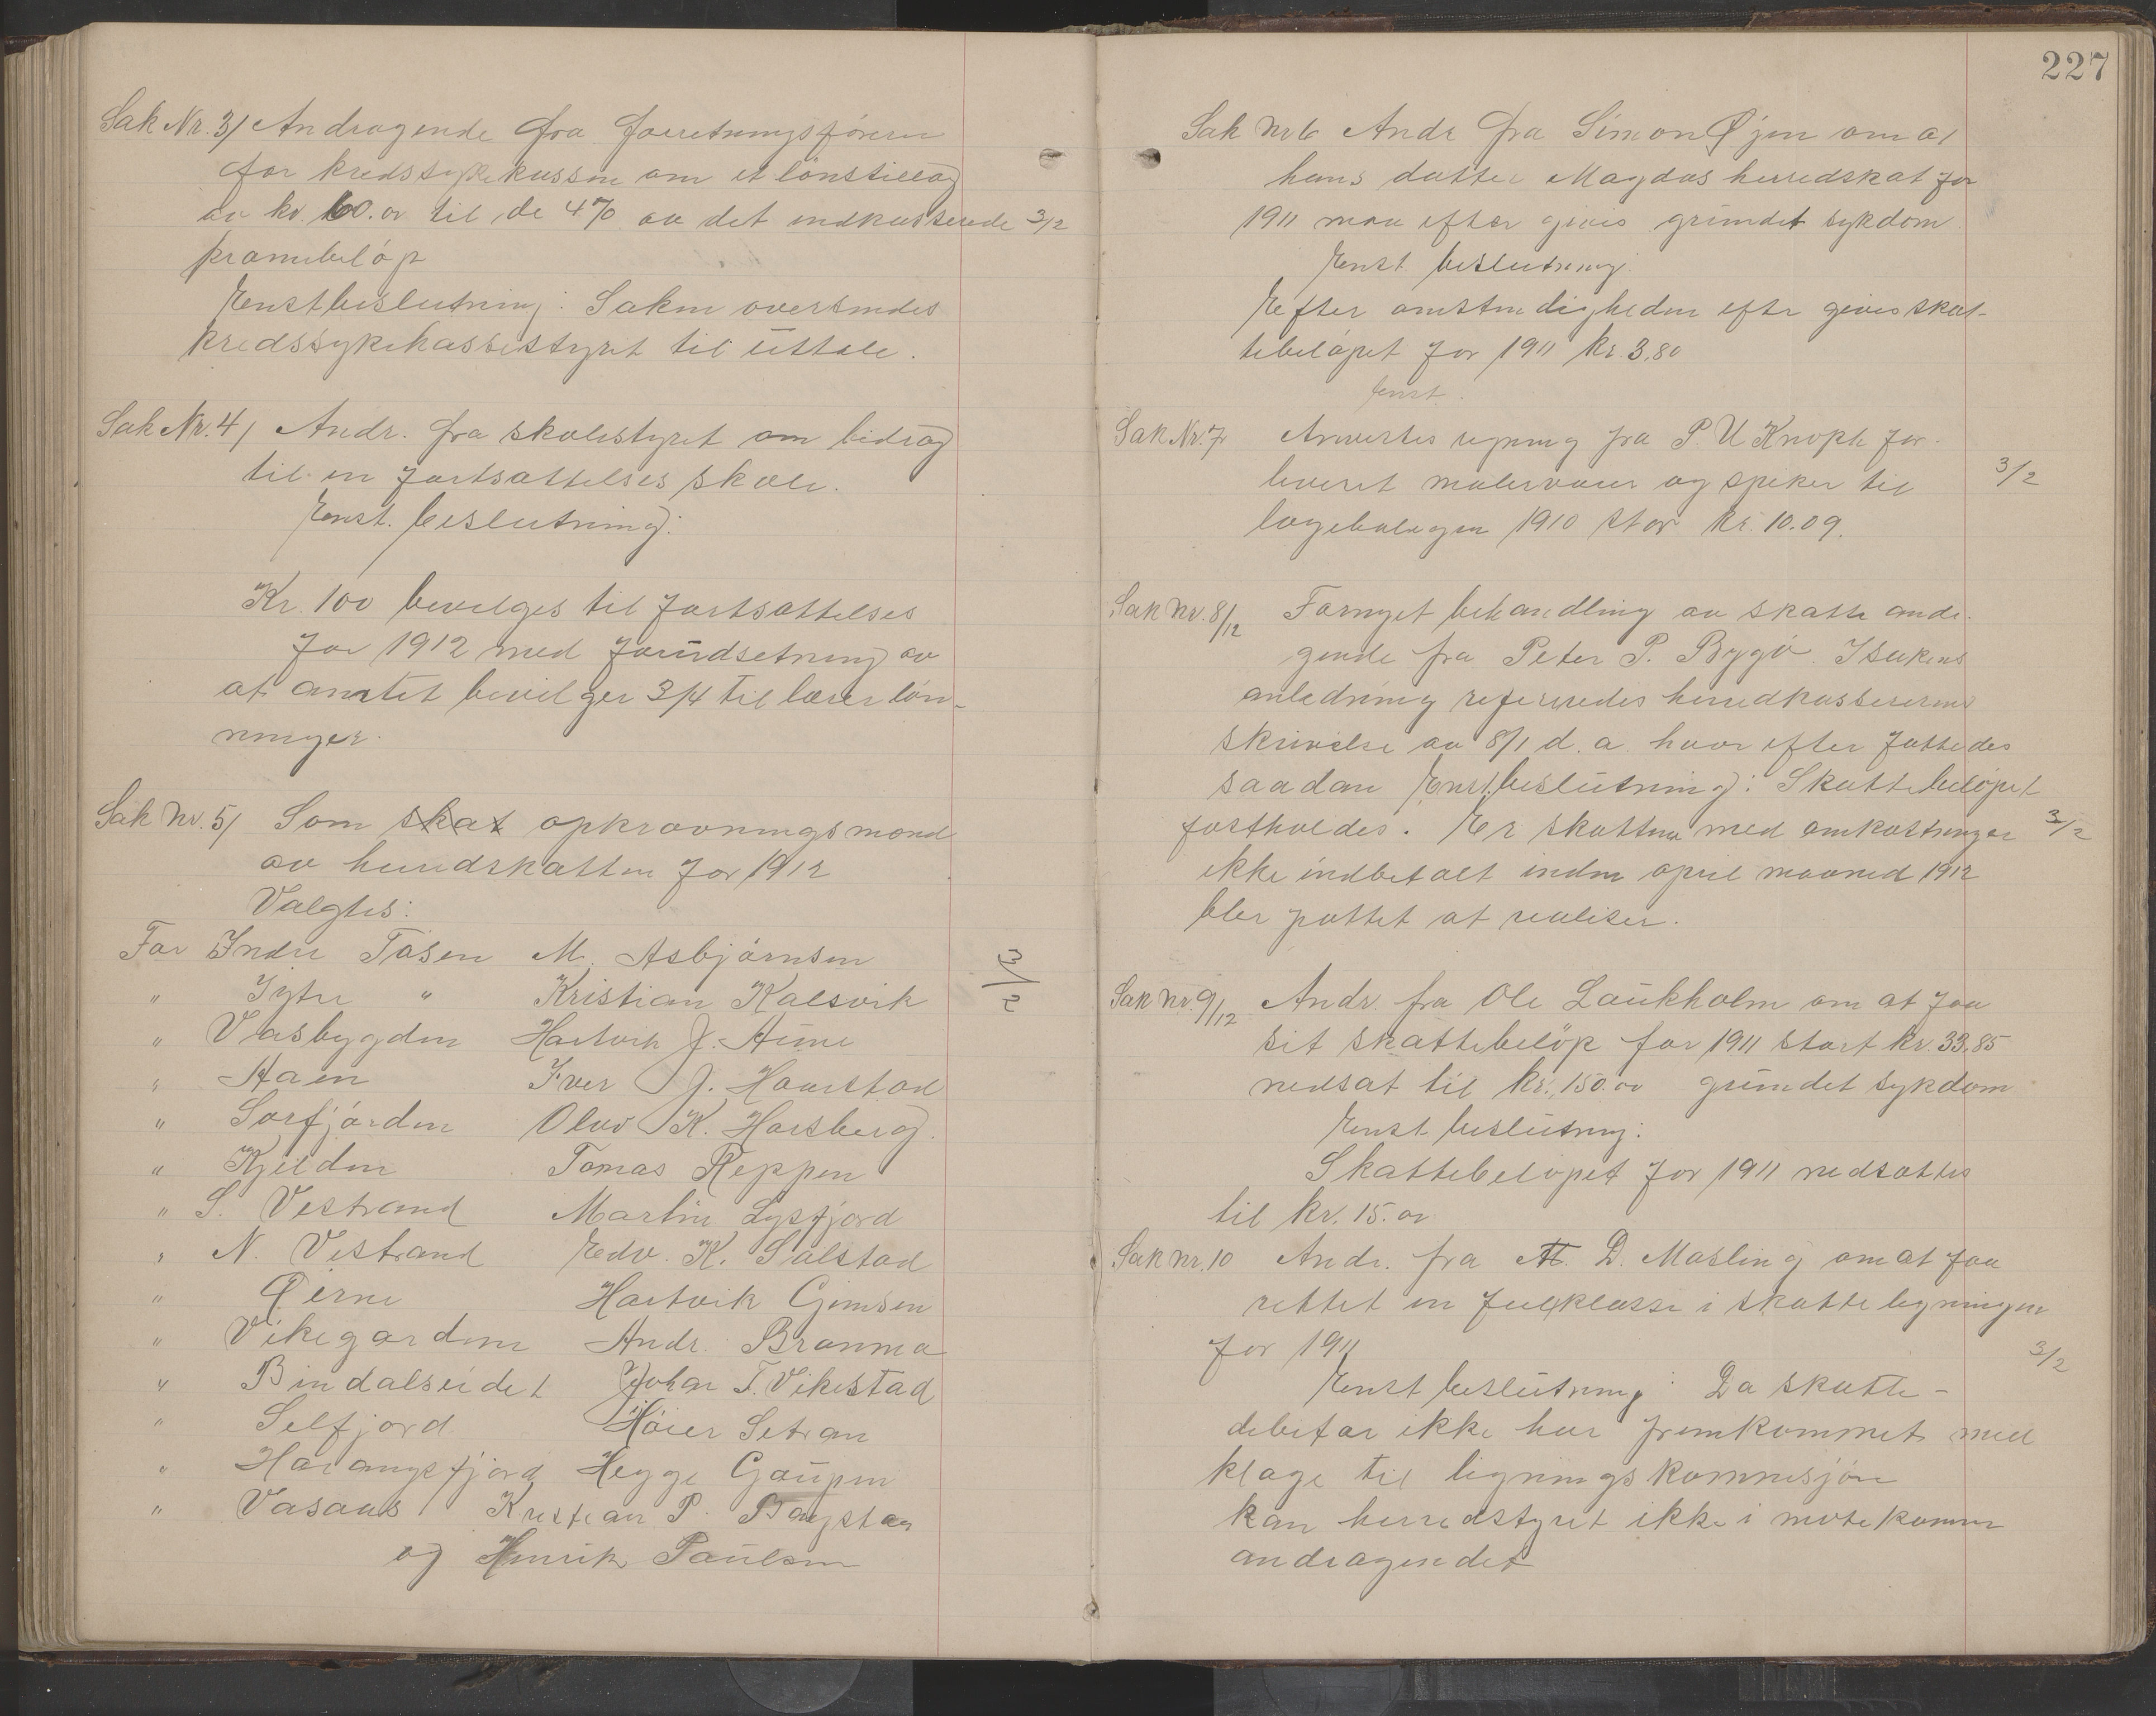 Sak Nr. 3/ Andragende fra forretningsføreren
for kredssykekassen om et lønstillæg
av kr. 60.00 til de 4% av det indkasserede 3/2
præmiebeløp
Enst beslutning: Saken oversendes
kredssykekassestyret til uttale.
Sak Nr. 4/ Andr. fra skolestyret om bidrag
til en fortsættelses skole.
Enst. beslutning:
Kr. 100 bevilges til fortsættelses
for 1912 med forudsetning av
at amtet bevilger 3/4 til lærerløn-
ninger.
Sak nr. 5/ Som skat opkrævningsmænd
av hundskatten for 1912
Valgtes:
For Indre Tosen M. Asbjørnsen
" Ytre " Kristian Kalsvik
" Vasbygden Hartvik J. Aune
" Aaen Iver J. Haarstad
" Sørfjorden Olav K. Horsberg
" Kjelden Tomas Reppen
" S. Vestrand Martin Lysfjord
" N. Vestrand Edv. K. Salstad
" Øerne Hartvik Gimsen
" Vikegarden Andr. Branmo
" Bindalseidet Johan T. Vikestad
" Selfjord Høier Setran
" Harangsfjord Hegge Gaupen
" Vasaas Kristian P. Bøgstad
og Henrik Paulsen
3/2
227
Sak nr 6 Andr fra Simon Øjen om at
hans datter Magdas herredskat for
1911 maa efter gives grundet sykdom
Enst beslutning
Efter omstendigheden efter gives skat-
tebeløpet for 1911 kr. 3.80
Enst.
Sak Nr. 7 Anvistes regning fra P. U Knoph for
leveret malervarer og spiker til 3/2
lægeboligen 1910 stor kr. 10.09.
Sak nr. 8/12 Fornyet behandling av skatte andr.
gende fra Peter P. Bygø. I sakens
anledning refereredes herredkassererens
skrivelse av 8/1 d. a. hvor efter fattedes
saadan Enst. beslutning: Skattebeløpet
fastholdes. Er skatten med omkostninger 3/2
ikke indbetalt inden april maaned 1912
bler pattet at realiser.
Sak nr. 9/12 Andr. fra Ole Laukholm om at faa
sit skattebeløp for 1911 stort kr. 33.85
nedsat til kr. 150.00 grundet sykdom
Enst beslutning:
Skattebeløpet for 1911 nedsættes
til kr. 15.00
Sak nr. 10 Andr. fra M. D. Mosling om at faa
rettet en feilklasse i skatteligningen
for 1911 3/2
Enst beslutning: Da skatte-
debetor ikke har fremkommet med
klage til ligningskommisjon
kan herredstyret ikke i møte komme
andragendet